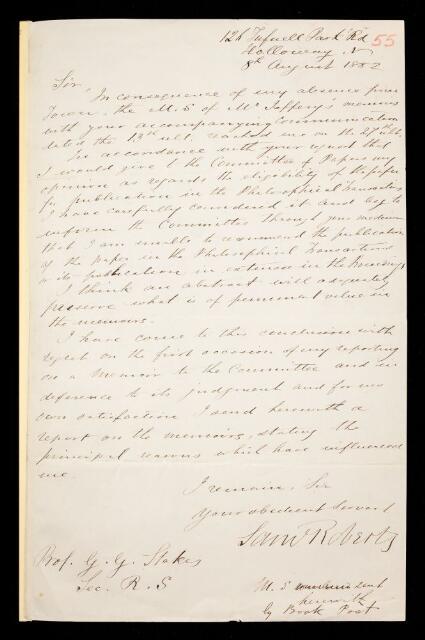 126 Tufnell Park Rd
55
Holloway N
8th August 1882
Sir,
In consequence of my absence from
Town, the M.S of Mr Jeffery's memoirs
with your accompanying Communication
dated the 13th ult. reached me on the 27th ult.
In accordance with your request that
I would give the Committee of Papers my
opinion as regards the eligibility of the paper
for publication in the Philosophical Transactions
I have carefully considered it and beg to
inform the Committee through your medium
that I am unable to recommend the publication
of the paper in the Philosophical Transactions
or its publication in extenso in the Proceedings
I think an abstract will adequately
preserve what is of permanent value in
the memoirs.
I have come to this conclusion with
regret on the first occasion of my reporting
on a Memoir to the Committee and in
deference to its judgment and for my
own satisfaction I send herewith a
report on the memoirs, stating the
principal reasons which have influenced
me.
I remain, Sir
Your obedient Servant
Saml Roberts
Prof. G. G. Stokes
Sec. R. S
M. S sent
herewith
by Book Post